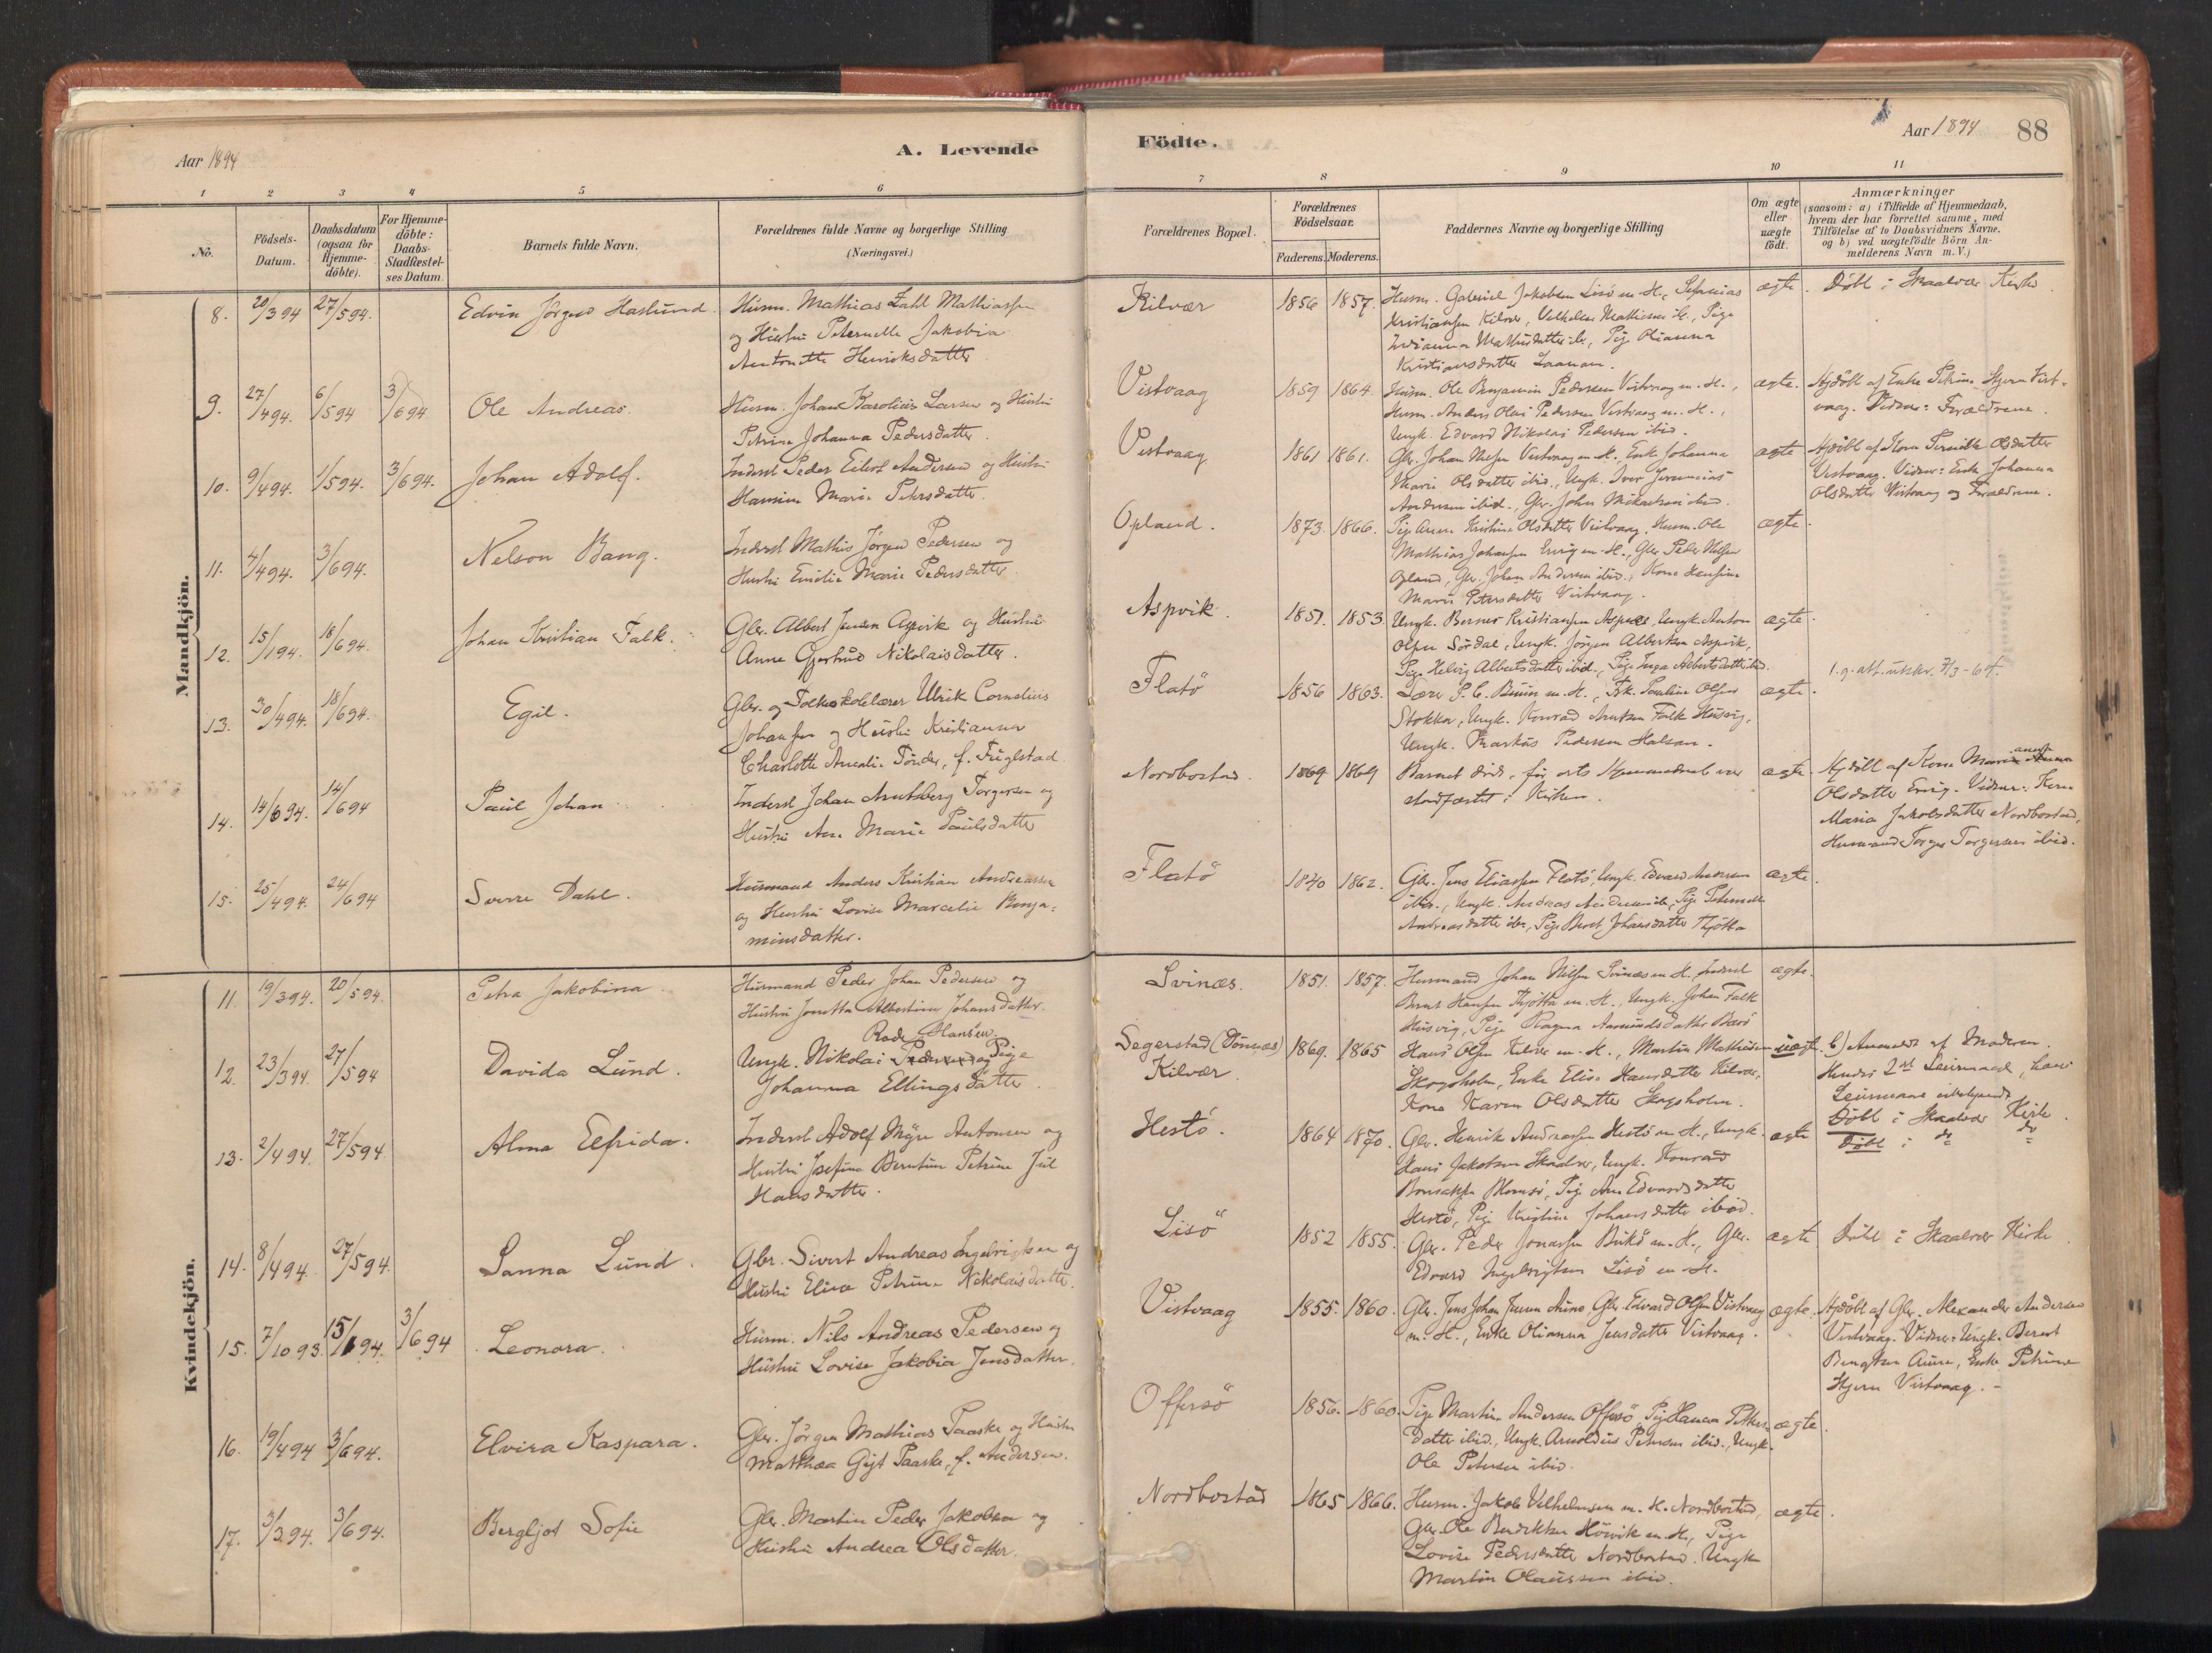 Aar 1894
A. Levende
Födte.
Aar 1894 88
1 2 3 4 5 6 7 8 9 10 11
No.
Födsels-
Datum.
Daabsdatum
(ogsaa for
Hjemme-
döbte).
For Hjemme-
döbte:
Daabs-
Stadfæstel-
ses Datum
Barnets fulde Navn.
Forældrenes fulde Navne og borgerlige Stilling
(Næringsvei.)
Forældrenes Bopæl.
Forældrenes
Födselsaar.
Faderens. Moderens.
Faddernes Navne og borgerlige Stilling
Om ægte
eller
uægte
födt.
Anmærkninger
(saasom: a) i Tilfælde af Hjemmedaab,
hvem der har forrettet samme, med
Tilföielse af to Daabsvidners Navne,
og b) ved uægtefödte Börn An-
melderens Navn m.V.)
Mandkjön.
8. 20/3 94 27/5 94. Edvin Jörgen Haslund.
Husm. Mathias Zahl Mathiassen
og Hustru Peternelle Jakobia
Antonette Henriksdatter
Kilvær 1856 1857.
Husm. Gabriel Jakobsen Lisö m. H., Sefanias
Kristiansen Kilvær, Vilhelm Mathisen ib., Pige
Kristiansdatter
ægte. Döbt i Skaalvær Kirke
9. 27/4 94. 6/5 94 3/6 94 Ole Andreas.
Husm. Johan Karolius Larsen og Hustru
Petrine Johanna Pedersdatter.
Vistvaag 1859 1864.
Husm. Ole Benjamin Pedersen Vistvaag m. H.,
Husm. Anders Olai Pedersen Vistvaag m. H.,
Ungk. Edvard Nikolai Pedersen ibid.
ægte. Hjdöbt af Enke Petrine Hjern Vist-
vaag. Vidner: Forældrene.
10. 9/4 94. 1/5 94. 3/6 94. Johan Adolf.
Inderst Peder Eilert Andersen og Hustru
Hansine Marie Petersdatter.
Vistvaag 1861 1861.
Gbr. Johan Nilsen Vistvaag m. H. Enke Johanna
Marie Olsdatter ibid., Ungk. Iver Jeremias
Andersen ibid., Gbr. John Mikaelsen ibid.
ægte Hjdöbt af Kona Pernille Olsdatter
Vistvaag. Vidner: Enke Johanna
Olsdatter Vistvaag og Forældrene.
11. 4/4 94. 3/6 94. Nelson Bang.
Inderst Mathis Jörgen Pedersen og
Hustru Emilie Marie Pedersdatter.
Opland. 1873. 1866.
Pige Anne Kristine Olsdatter Vistvaag, Husm. Ole
Mathias Johansen m. H., Gbr. Peder Nilsen
Opland, Gbr. Johan Andersen ibid., Kone Hansine
Marie Petersdatter Vistvaag.
ægte.
12. 15/1 94. 18/6 94. Johan Kristian Falk.
Gbr. Albert Jensen Aspvik og Hustru
Anne Gjertrud Nikolaisdatter.
Aspvik 1851. 1853.
Ungk. Berner Kristiansen, Ungk. Anton
Olsen Sördal, Ungk. Jörgen Albertsen Aspvik,
Pige Helvig Albertsdatter ibid., Pige Inga Albertsdatter ibid.
ægte.
13. 30/4 94. 18/6 94. Egil.
Gbr. og Folkeskolelærer Ulrik Cornelius
Johansen og Hustru Kristianna
Charlotte Amalie Tönder, f. Fuglstad
Flatö 1856 1863.
Lærer P. C. Bruun m. H., Frk. Pauline Olsen
Stokka, Ungk. Konrad Knutsen Falk Husvig,
Ungk. Markus Pedersen Halsan.
ægte. 1.g. att. utskr. 7/3-64.
14. 14/6 94. 14/6 94 Paul Johan
Inderst Johan Arntsberg Torgersen og
Hustru Ane Marie Paulsdatter
Nordbostad. 1869 1869
Barnet död, för dets Hjemmedaab var
stadfæstet i Kirken.
ægte. Hjdöbt af Kone Maria Anna
Olsdatter. Vidner: Kone
Maria Jakobsdatter Nordbostad,
Husmand Torger Torgersen ibid.
15. 25/4 94. 24/6 94 Sverre Dahl.
Husmand Anders Kristian Andreassen
og Hustru Lovise Marcelie Benja-
minsdatter.
Flatö 1840 1862.
Gbr. Jens Eliassen Flatö, Ungk. Edvard Andersen
ibid., Ungk. Andreas Andersen ib., Pige Peternelle
Andreasdatter ib., Pige Berit Johansdatter Thjötta
ægte.
Kvindekjön.
11. 19/3 94. 20/5 94. Petra Jakobina.
Husmand Peder Johan Pedersen og
Hustru Jonetta Albertine Johansdatter.
Svinæs. 1851. 1857.
Husmand Johan Nilsen Svinæs m. H. Inderst
Bernt Hansen Thjötta m. H., Ungk. Johan Falk
Husvig, Pige Ragna Aamundsdatter
ægte.
12. 23/3 94. 27/5 94 Davida Lund.
Rode Hansen.
Ungk. Nikolai Pedersen og Pige
Johanna Ellingsdatter
Segerstad (Dönnæs)
Kilvær. 1869. 1865
Hans Olsen Kilvær m. H., Martin Mathisen
Skogsholm, Enke Elise Hansdatter Kilvær,
Kone Karen Olsdatter Skogsholm.
uægte. b) Anmeldt af Moderen.
Hendes 2det Leiermaal, hans
Leiermaal ubekjendt
Döbt i Skaalvær Kirke.
13. 2/4 94. 27/5 94 Alma Elfrida.
Inderst Adolf Myre Antonsen og
Hustru Josefine Berntine Petrine Jul
Hansdatter.
Hestö. 1864 1870.
Gbr. Henrik Andreassen Hestö m. H., Ungk.
Hans Jakobsen Skaalvær, Ungk. Konrad
Pige Ane Edvardsdatter
Hestö, Pige Kristine Johansdatter ibid.
ægte Döbt i do do
14. 8/4 94 27/5 94. Sanna Lund.
Gbr. Sivert Andreas Ingebrigtsen og
Hustru Elisa Petrine Nikolaisdatter.
Lisö 1852 1855.
Gbr. Peder Jonassen m. H., Gbr.
Edvard Ingebrigtsen Lisö m. H.
ægte Döbt i Skaalvær Kirke
15. 7/10 93. 15/1 94. 3/6 94 Leonora.
Husm. Nils Andreas Pedersen og
Hustru Lovise Jakobia Jensdatter.
Vistvaag 1855. 1860.
Gbr. Jens Johan Jensen, Gbr. Edvard Olsen Vistvaag
m. H., Enke Olianna Jensdatter Vistvaag.
ægte. Hjdöbt af Gbr. Alexander Andersen
Vistvaag. Vidner: Ungk. Berent
Bengtsen Aune, Enke Petrine
Hjern Vistvaag.
16. 19/4 94 3/6 94. Elvira Kaspara.
Gbr. Jörgen Mathias Paaske og Hustru
Matthea Gigt Paaske, f. Andersen.
Offersö 1856. 1860.
Pige Martine Andersen Offersö, Pige Hanna Petters-
datter ibid., Ungk. Arnoldus Petersen ibid., Ungk.
Ole Petersen ibid.
ægte.
17. 3/3 94. 3/6 94. Bergljot Sofie
Gbr. Martin Peder Jakobsen og
Hustru Andrea Olsdatter.
Nordbostad 1865 1866.
Husm. Jakob Vilhelmsen m. H. Nordbostad,
Gbr. Ole Bendiktsen Höivik m. H., Pige
Lovise Pedersdatter Nordbostad. Ungk.
Martin Olaussen ibid.
ægte.